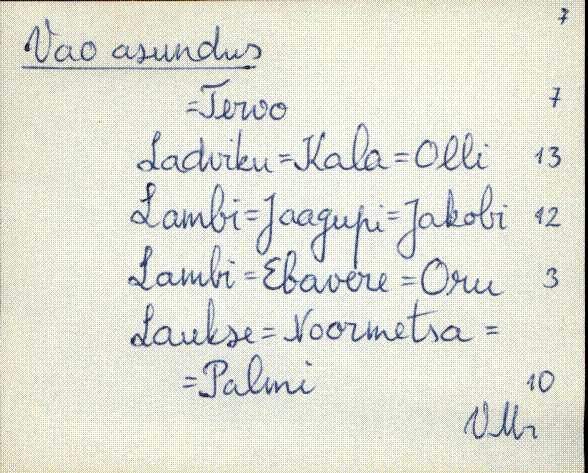 7
Vao asundus
=Tervo 7
Ladviku=Kala=Olli 13
Lambi=Jaagupi=Jakobi 12
Lambi=Ebavere=Oru 3
Laukse=Noormetsa =
=Palmi 10
VMr